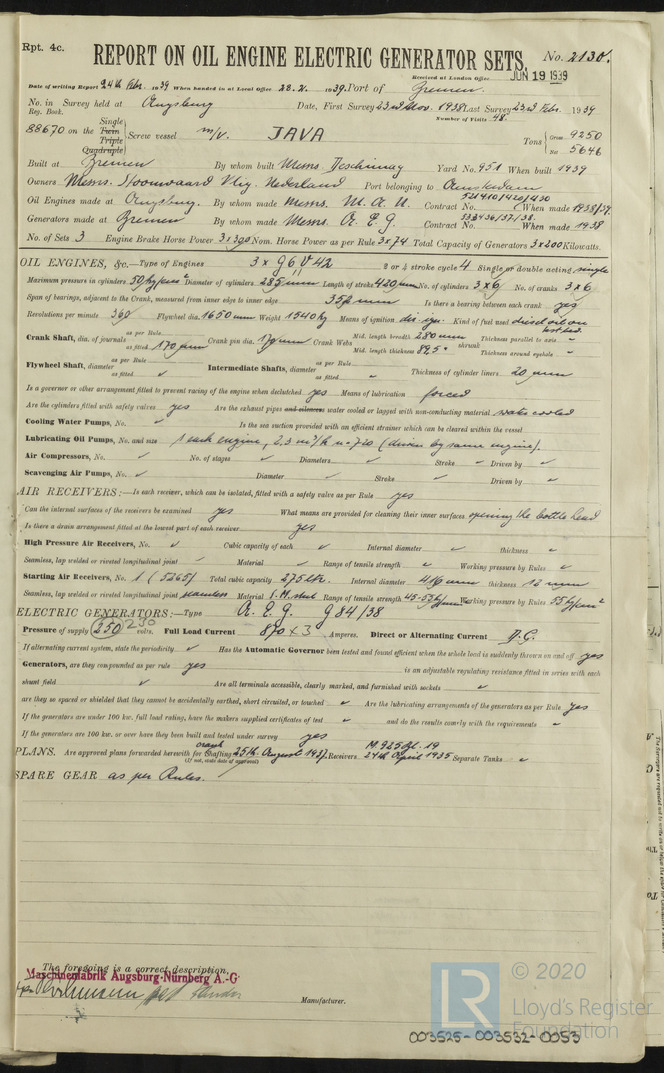 Rpt. 4c.
REPORT ON OIL ENGINE ELECTRIC GENERATOR SETS. No. 2130.
Received at London Office JUN 19 1939
Date of writing Report 24th Feb. 1939 When handed in at Local Office 28.2. 1939. Port of Bremen.
No. in Survey held at Augsburg Date, First Survey 23rd Nov. 1938 Last Survey 23rd Febr. 1939
Reg. Book. Number of Visits 48.
88670 on the Single Twin Triple Quadruple Screw vessel m/v. JAVA Tons Gross 9250 Net 5646
Built at Bremen By whom built Messrs Deschimag Yard No. 951 When built 1939
Owners Messrs. Stoomvaard Port belonging to Amsterdam
Oil Engines made at Augsburg. By whom made Messrs. M. A. N. Contract No. 521410/420/430 When made 1938/39.
Generators made at Bremen By whom made Messrs. A. E. G. Contract No. 533436/37/38. When made 1938
No. of Sets 3 Engine Brake Horse Power 3x300 Nom. Horse Power as per Rule 3x74 Total Capacity of Generators 3x200 Kilowatts.
OIL ENGINES, &c.—Type of Engines 3 x G6V42 2 or 4 stroke cycle 4 Single or double acting single
Maximum pressure in cylinders 50 kg/cm² Diameter of cylinders 285 mm Length of stroke 420 mm No. of cylinders 3x6 No. of cranks 3x6
Span of bearings, adjacent to the Crank, measured from inner edge to inner edge 352 mm Is there a bearing between each crank yes
Revolutions per minute 360 Flywheel dia. 1650 mm Weight 1540 kg Means of ignition dir. inj. Kind of fuel used diesel oil
Crank Shaft, dia. of journals as per Rule as fitted 170 mm Crank pin dia. 170 mm Crank Webs Mid. length breadth 280 mm Mid. length thickness 89,5 " shrunk Thickness parallel to axis " Thickness around eyehole "
Flywheel Shaft, diameter as per Rule as fitted ✓ Intermediate Shafts, diameter as per Rule as fitted ✓ Thickness of cylinder liners 20 mm
Is a governor or other arrangement fitted to prevent racing of the engine when declutched yes Means of lubrication forced
Are the cylinders fitted with safety valves yes Are the exhaust pipes and silencers water cooled or lagged with non-conducting material water cooled
Cooling Water Pumps, No. ✓ Is the sea suction provided with an efficient strainer which can be cleared within the vessel
Lubricating Oil Pumps, No. and size 1 each engine, 2,3 m³/h n=720 (driven by same engine).
Air Compressors, No. ✓ No. of stages ✓ Diameters ✓ Stroke ✓ Driven by ✓
Scavenging Air Pumps, No. ✓ Diameter ✓ Stroke ✓ Driven by ✓
AIR RECEIVERS:—Is each receiver, which can be isolated, fitted with a safety valve as per Rule yes
Can the internal surfaces of the receivers be examined yes What means are provided for cleaning their inner surfaces opening the bottle head
Is there a drain arrangement fitted at the lowest part of each receiver yes
High Pressure Air Receivers, No. ✓ Cubic capacity of each ✓ Internal diameter ✓ thickness ✓
Seamless, lap welded or riveted longitudinal joint ✓ Material ✓ Range of tensile strength ✓ Working pressure by Rules ✓
Starting Air Receivers, No. 1 (5265) Total cubic capacity 275 ltr. Internal diameter 416 mm thickness 12 mm
Seamless, lap welded or riveted longitudinal joint seamless Material S.M. steel Range of tensile strength 45-53 kg/mm² Working pressure by Rules 35 kg/cm²
ELECTRIC GENERATORS:—Type A. E. G. G 84/38
Pressure of supply 250 230 volts. Full Load Current 870 x 3 Amperes. Direct or Alternating Current D.C.
If alternating current system, state the periodicity ✓ Has the Automatic Governor been tested and found efficient when the whole load is suddenly thrown on and off yes
Generators, are they compounded as per rule yes is an adjustable regulating resistance fitted in series with each
shunt field ✓ Are all terminals accessible, clearly marked, and furnished with sockets ✓
are they so spaced or shielded that they cannot be accidentally earthed, short circuited, or touched ✓ Are the lubricating arrangements of the generators as per Rule yes
If the generators are under 100 kw. full load rating, have the makers supplied certificates of test ✓ and do the results comply with the requirements ✓
If the generators are 100 kw. or over have they been built and tested under survey yes
PLANS. Are approved plans forwarded herewith for Shafting crank 25th August 1937. Receivers 24th April 1935 Separate Tanks ✓
(If not, state date of approval)
SPARE GEAR as per Rules.
The foregoing is a correct description,
Maschinenfabrik Augsburg-Nürnberg A.-G
Manufacturer.
LR © 2020
Lloyd's Register
Foundation
003525-003532-0053